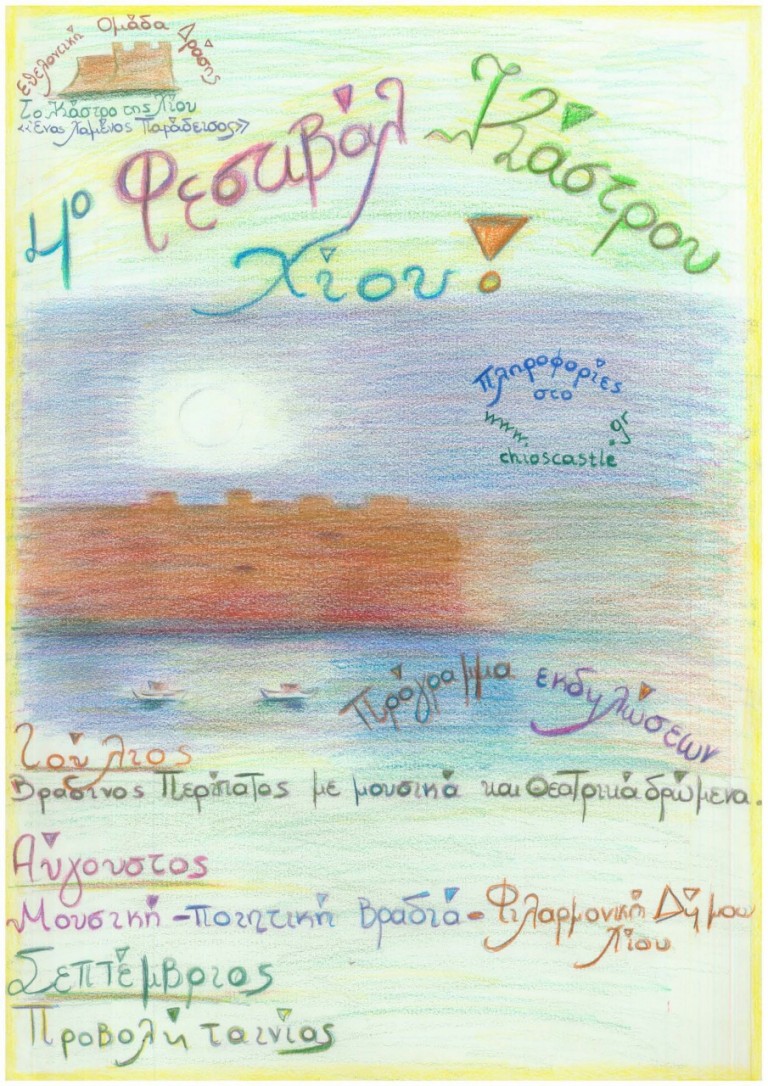 Εθελοντική Ομάδα Δράσης
Το Κάστρο της Χίου
«Ένας Χαμένος Παράδεισος»
4º Φεστιβάλ Κάστρου
Χίου!
Πληροφορίες
στο
www.chioscastle.gr
Πρόγραμμα εκδηλώσεων
Ιούλιος
Βραδινός Περίπατος με μουσικά και Θεατρικά δρώμενα.
Αύγουστος
Μουσική - Ποιητική Βραδιά - Φιλαρμονική Δήμου
Χίου
Σεπτέμβριος
Προβολή ταινίας